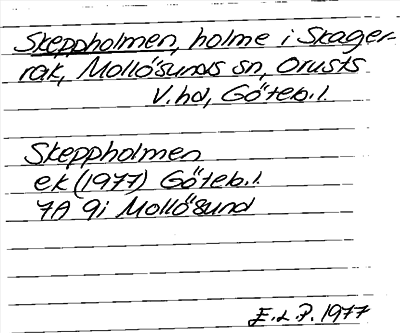 Skeppholmen, holme i Skager-
rak, Mollösunds sn, Orusts
V. hd, Göteb. l.
Skeppholmen
ek (1977) Göteb. l.
7A 9i Mollösund
E.L.P. 1977